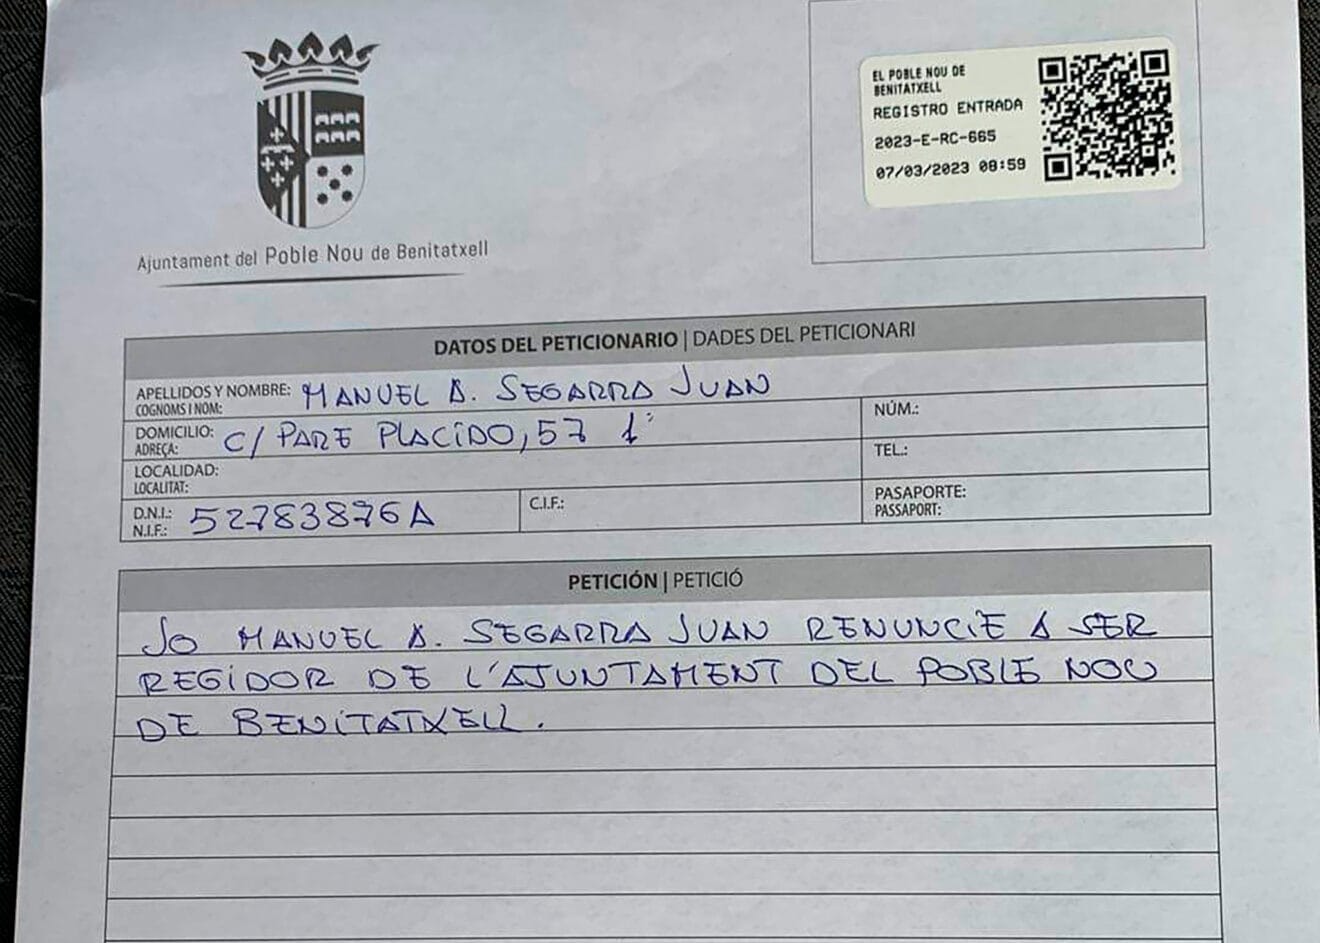 Ajuntament del Poble Nou de Benitatxell
EL POBLE NOU DE
BENITATXELL
REGISTRO ENTRADA
2023-E-RC-665
07/03/2023 08:59
DATOS DEL PETICIONARIO | DADES DEL PETICIONARI
APELLIDOS Y NOMBRE: MANUEL A. SEGARRA JUAN
COGNOMS I NOM:
DOMICILIO: C/ PARE PLACIDO, 57 1º
ADREÇA:
NÚM.:
LOCALIDAD:
LOCALITAT:
TEL.:
D.N.I.: 52783876A
N.I.F.:
C.I.F.:
PASAPORTE:
PASSAPORT:
PETICIÓN | PETICIÓ
JO MANUEL A. SEGARRA JUAN RENUNCIE A SER
REGIDOR DE L'AJUNTAMENT DEL POBLE NOU
DE BENITATXELL.